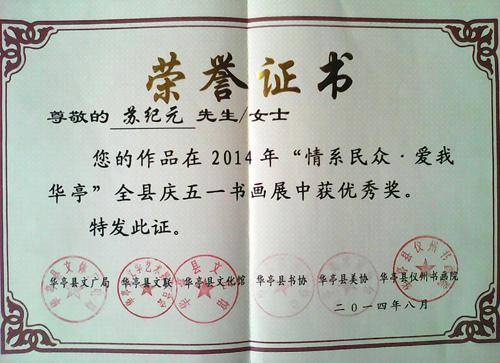 荣誉证书
尊敬的 苏纪元 先生/女士
您的作品在2014年“情系民众·爱我
华亭”全县庆五一书画展中获优秀奖。
特发此证。
华亭县文广局 华亭县文联 华亭县文化馆 华亭县书协 华亭县美协 华亭县仪州书画院
二〇一四年八月